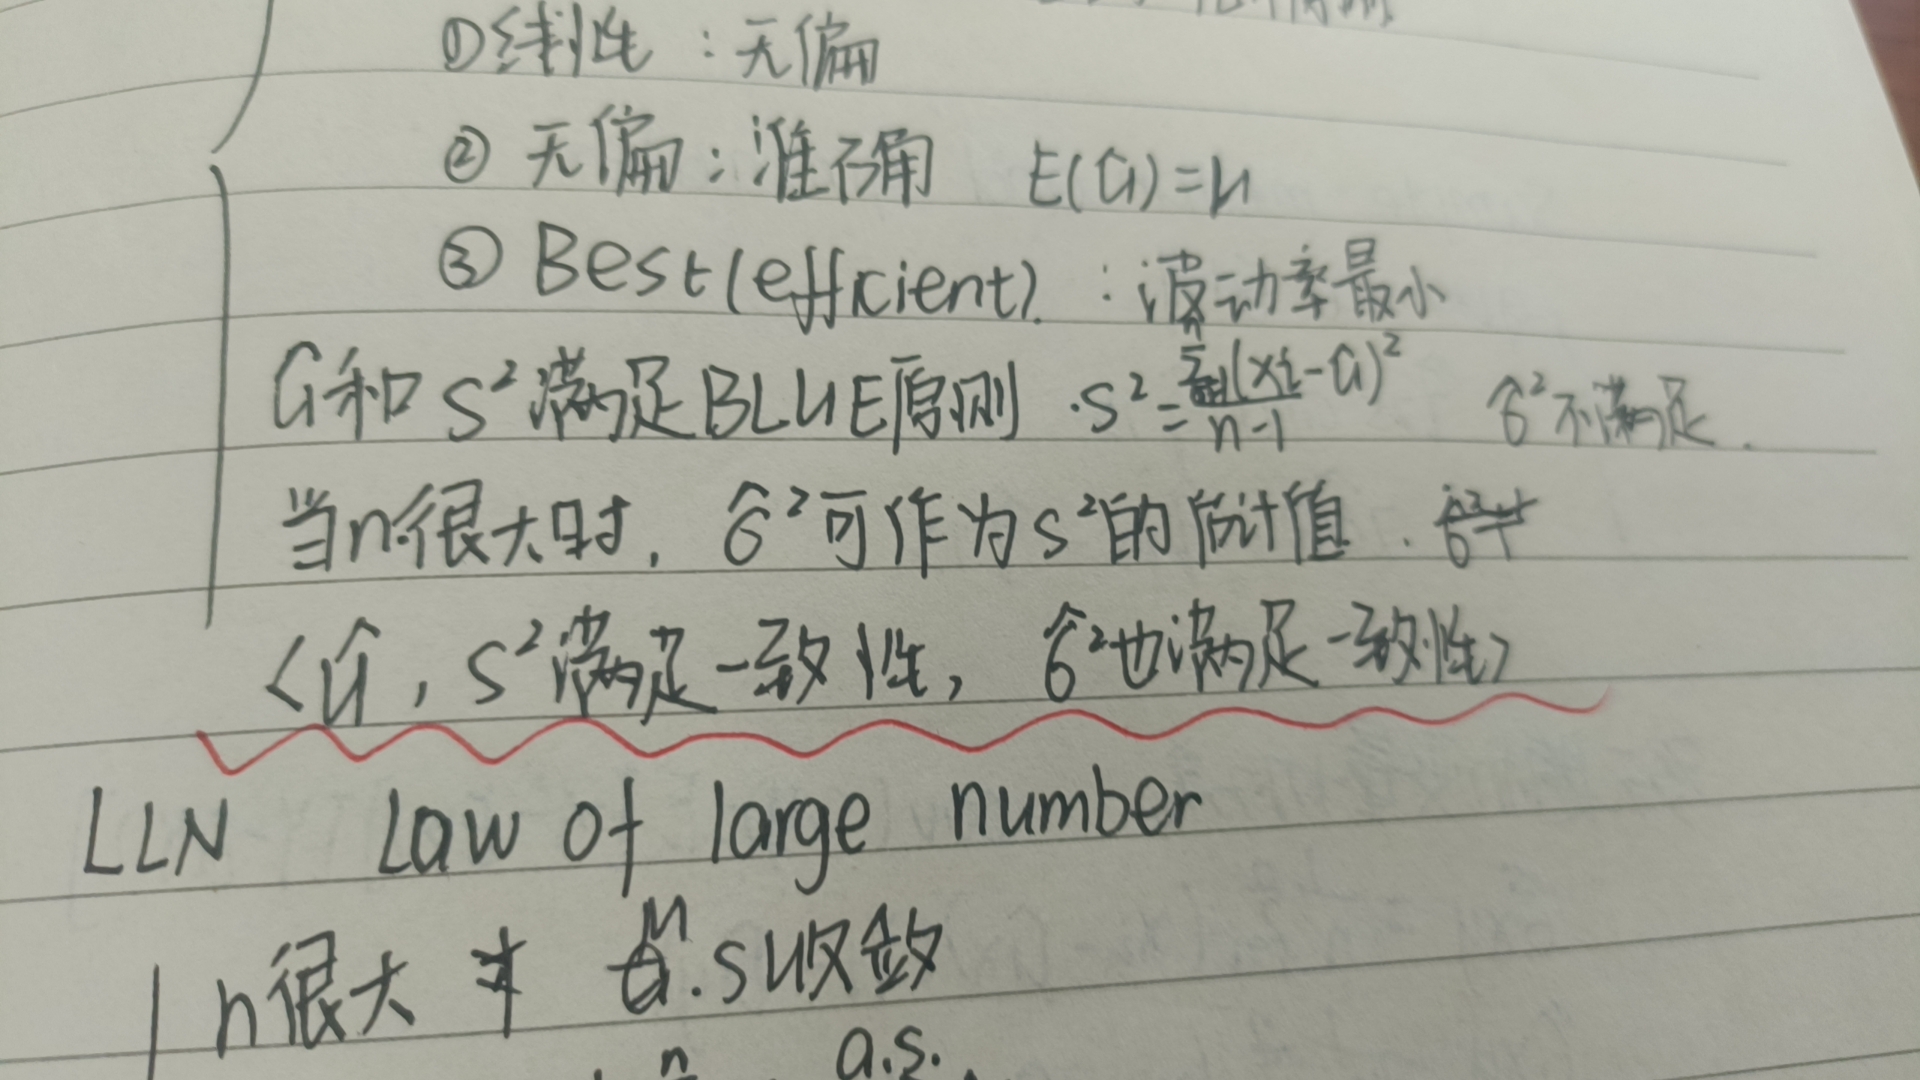 ①线性：无偏
② 无偏：准确 E(û)=μ
③ Best(efficient). ：波动率最小
û和S²满足BLUE原则 . S²=∑(xi-û)²/n-1 σ̂²不满足.
当n很大时, σ̂²可作为S²的估计值.
<û, S²满足一致性, σ̂²也满足一致性>
LLN Law of large number
n很大 μ.S收敛
n a.s.